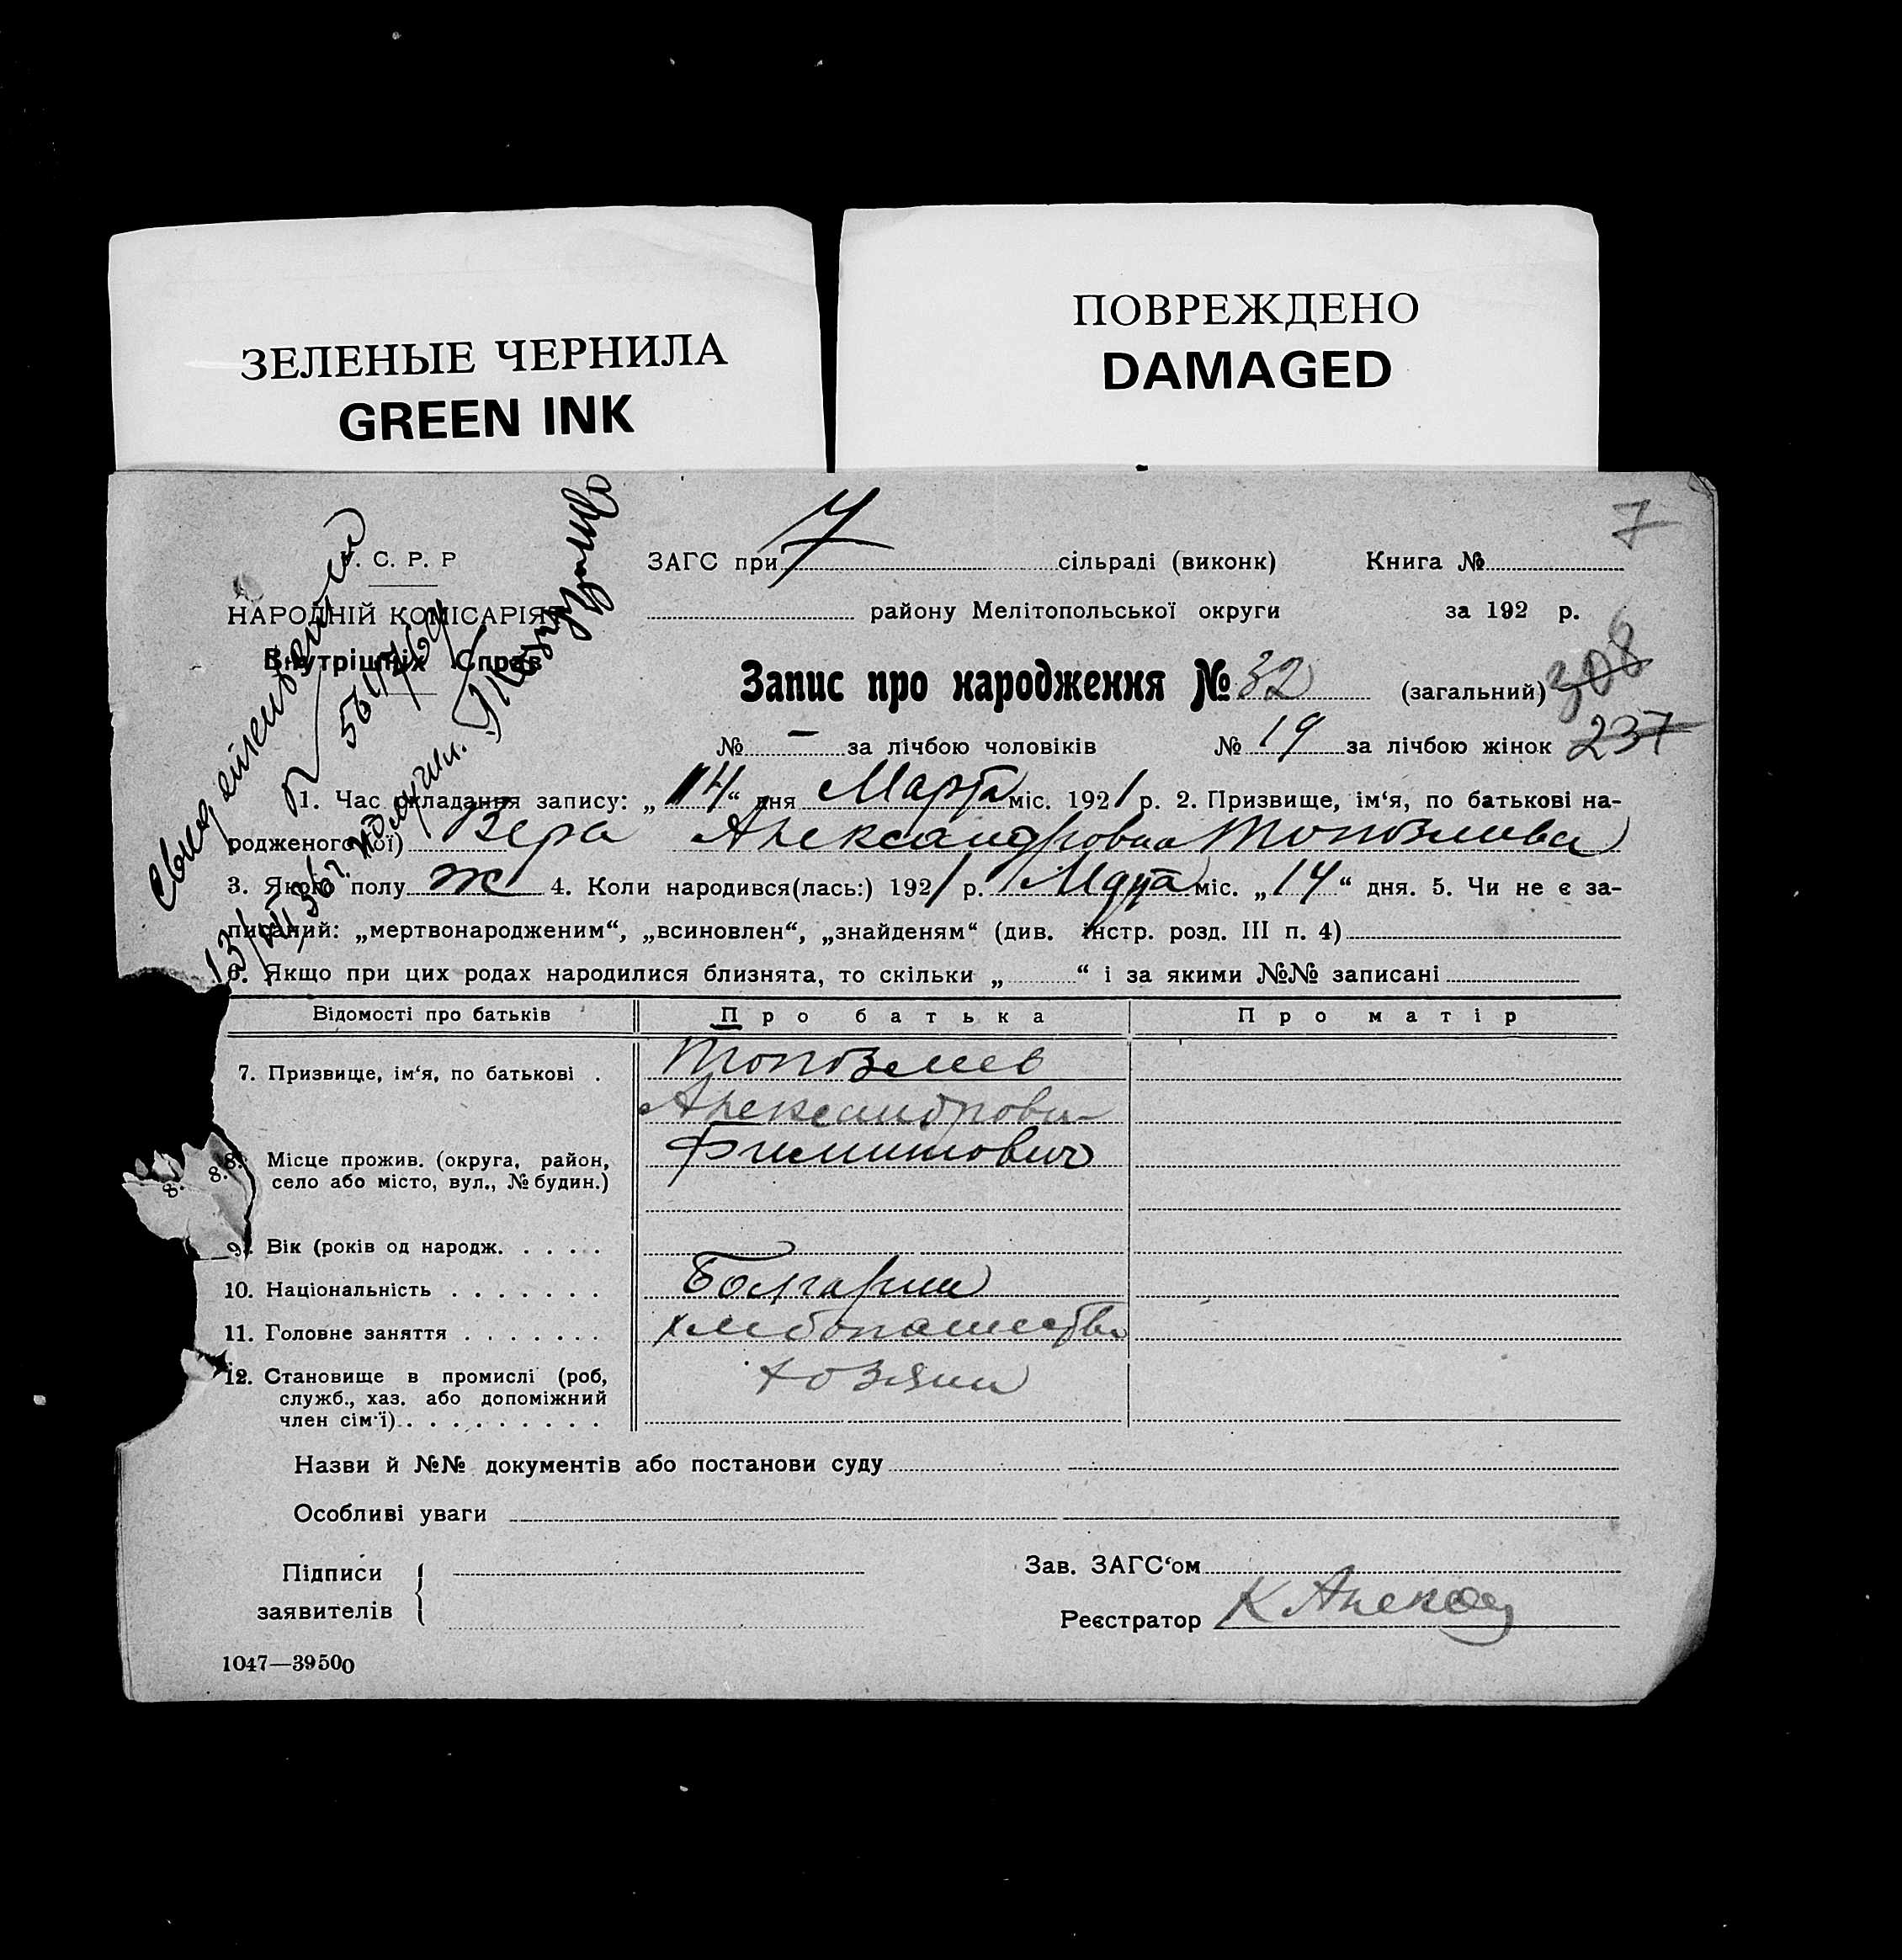 ЗЕЛЕНЫЕ ЧЕРНИЛА
GREEN INK
ПОВРЕЖДЕНО
DAMAGED
7
У. С. Р. Р
НАРОДНІЙ КОМІСАРІЯТ
Внутрішніх Справ
ЗАГС при 7 сільраді (виконк) Книга №
району Мелітопольської округи за 192 р.
Запис про народження № 32 (загальний) 308
№ - за лічбою чоловіків № 19 за лічбою жінок 237
1. Час складання запису: „14“ дня Марта міс. 1921 р. 2. Призвище, ім‘я, по батькові на-
родженого(ої) Вера Александровна Топозлиева
3. Якого полу ж 4. Коли народився(лась:) 1921 р. Марта міс. „14“ дня. 5. Чи не є за-
писаний: „мертвонародженим“, „всиновлен“, „знайденям“ (див. інстр. розд. III п. 4)
6. Якщо при цих родах народилися близнята, то скільки „ “ і за якими №№ записані
Відомості про батьків Про батька Про матір
7. Призвище, ім‘я, по батькові . Топозлиев
Александрович
Филиппович
8. 8. 8. Місце прожив. (округа, район,
село або місто, вул., № будин.)
9. Вік (років од народж. . . . .
10. Національність . . . . . . . Болгарин
11. Головне заняття . . . . . . . хлебопашество
12. Становище в промислі (роб, хозяин
служб., хаз. або допоміжний
член сім‘ї). . . . . . . . . .
Назви й №№ документів або постанови суду
Особливі уваги
Підписи
заявителів
Зав. ЗАГС‘ом
Реєстратор К Алекс
1047—39500